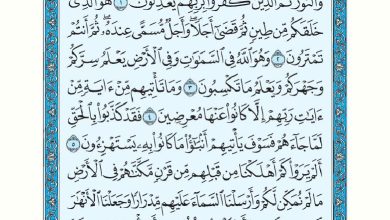 وَالنُّورَ ثُمَّ الَّذِينَ كَفَرُوا بِرَبِّهِمْ يَعْدِلُونَ ١ هُوَ الَّذِي
خَلَقَكُم مِّن طِينٍ ثُمَّ قَضَىٰ أَجَلًا وَأَجَلٌ مُّسَمًّى عِندَهُ ثُمَّ أَنتُمْ
تَمْتَرُونَ ٢ وَهُوَ اللَّهُ فِي السَّمَاوَاتِ وَفِي الْأَرْضِ يَعْلَمُ سِرَّكُمْ
وَجَهْرَكُمْ وَيَعْلَمُ مَا تَكْسِبُونَ ٣ وَمَا تَأْتِيهِم مِّنْ ءَايَةٍ مِّنْ
ءَايَاتِ رَبِّهِمْ إِلَّا كَانُوا عَنْهَا مُعْرِضِينَ ٤ فَقَدْ كَذَّبُوا بِالْحَقِّ
لَمَّا جَاءَهُمْ فَسَوْفَ يَأْتِيهِمْ أَنبَاءُ مَا كَانُوا بِهِ يَسْتَهْزِءُونَ ٥
أَلَمْ يَرَوْا كَمْ أَهْلَكْنَا مِن قَبْلِهِم مِّن قَرْنٍ مَّكَّنَّاهُمْ فِي الْأَرْضِ
مَا لَمْ نُمَكِّن لَّكُمْ وَأَرْسَلْنَا السَّمَاءَ عَلَيْهِم مِّدْرَارًا وَجَعَلْنَا الْأَنْهَارَ